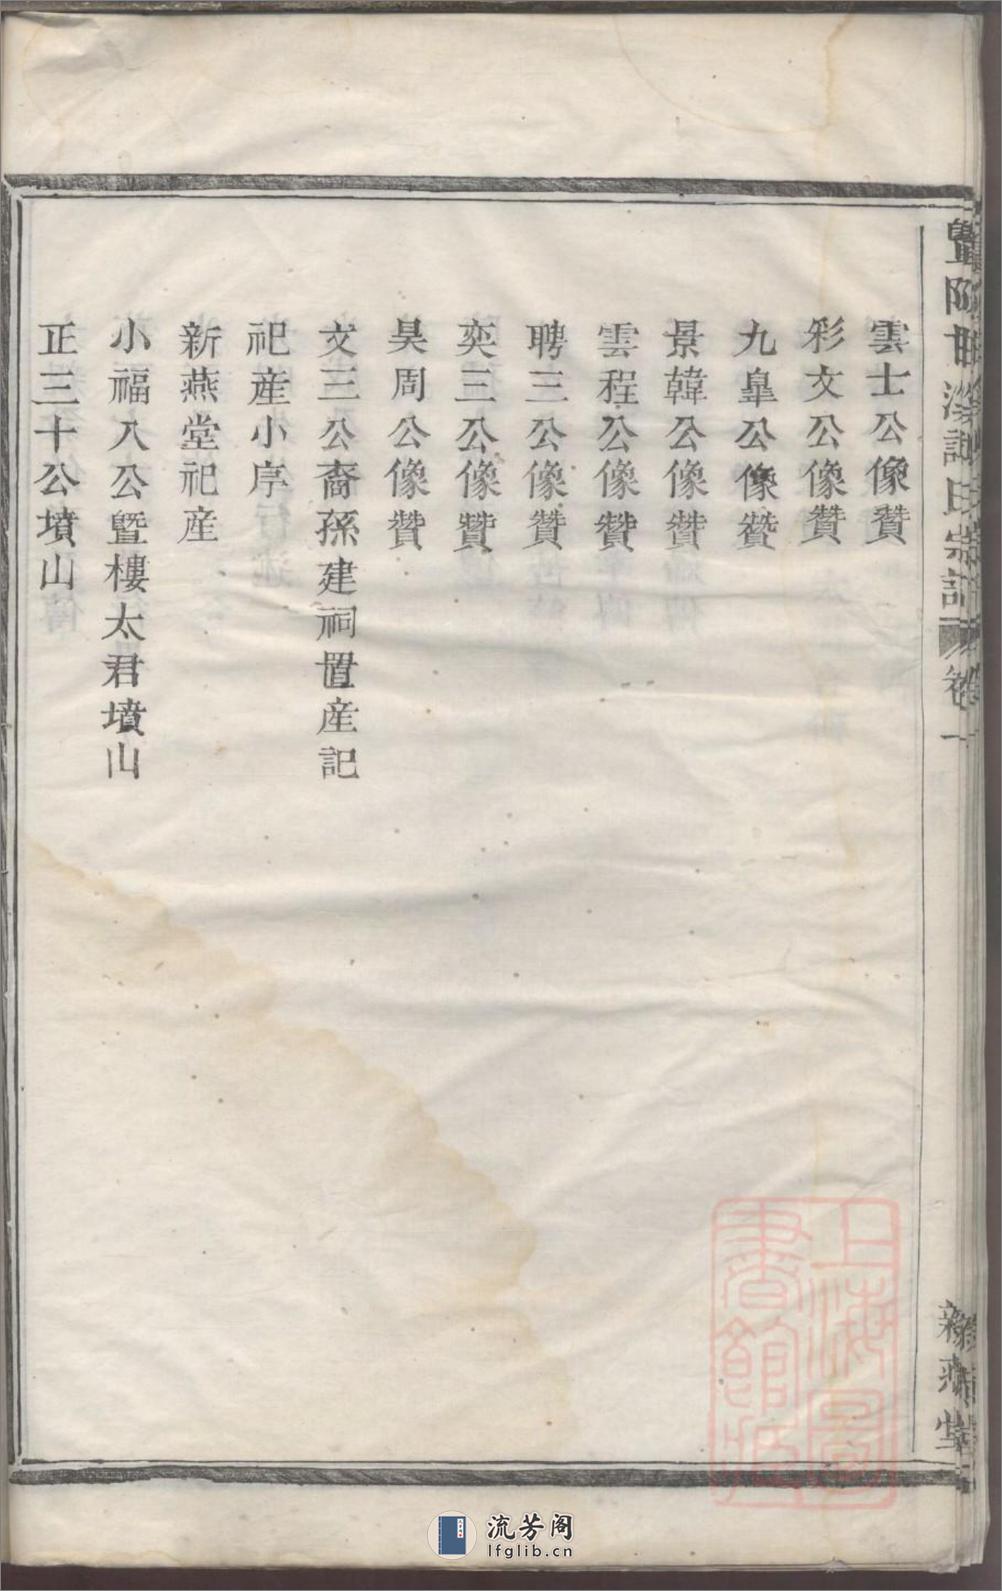 雲士公像贊
彩文公像贊
九臯公像贊
景韓公像贊
雲程公像贊
聘三公像贊
奕三公像贊
昊周公像贊
文三公裔孫建祠置産記
祀産小序
新燕堂祀産
小福八公曁樓太君墳山
正三十公墳山
曁陽 溪 氏宗譜 卷一
新燕堂
上海圖書館藏
流芳阁
lfglib.cn